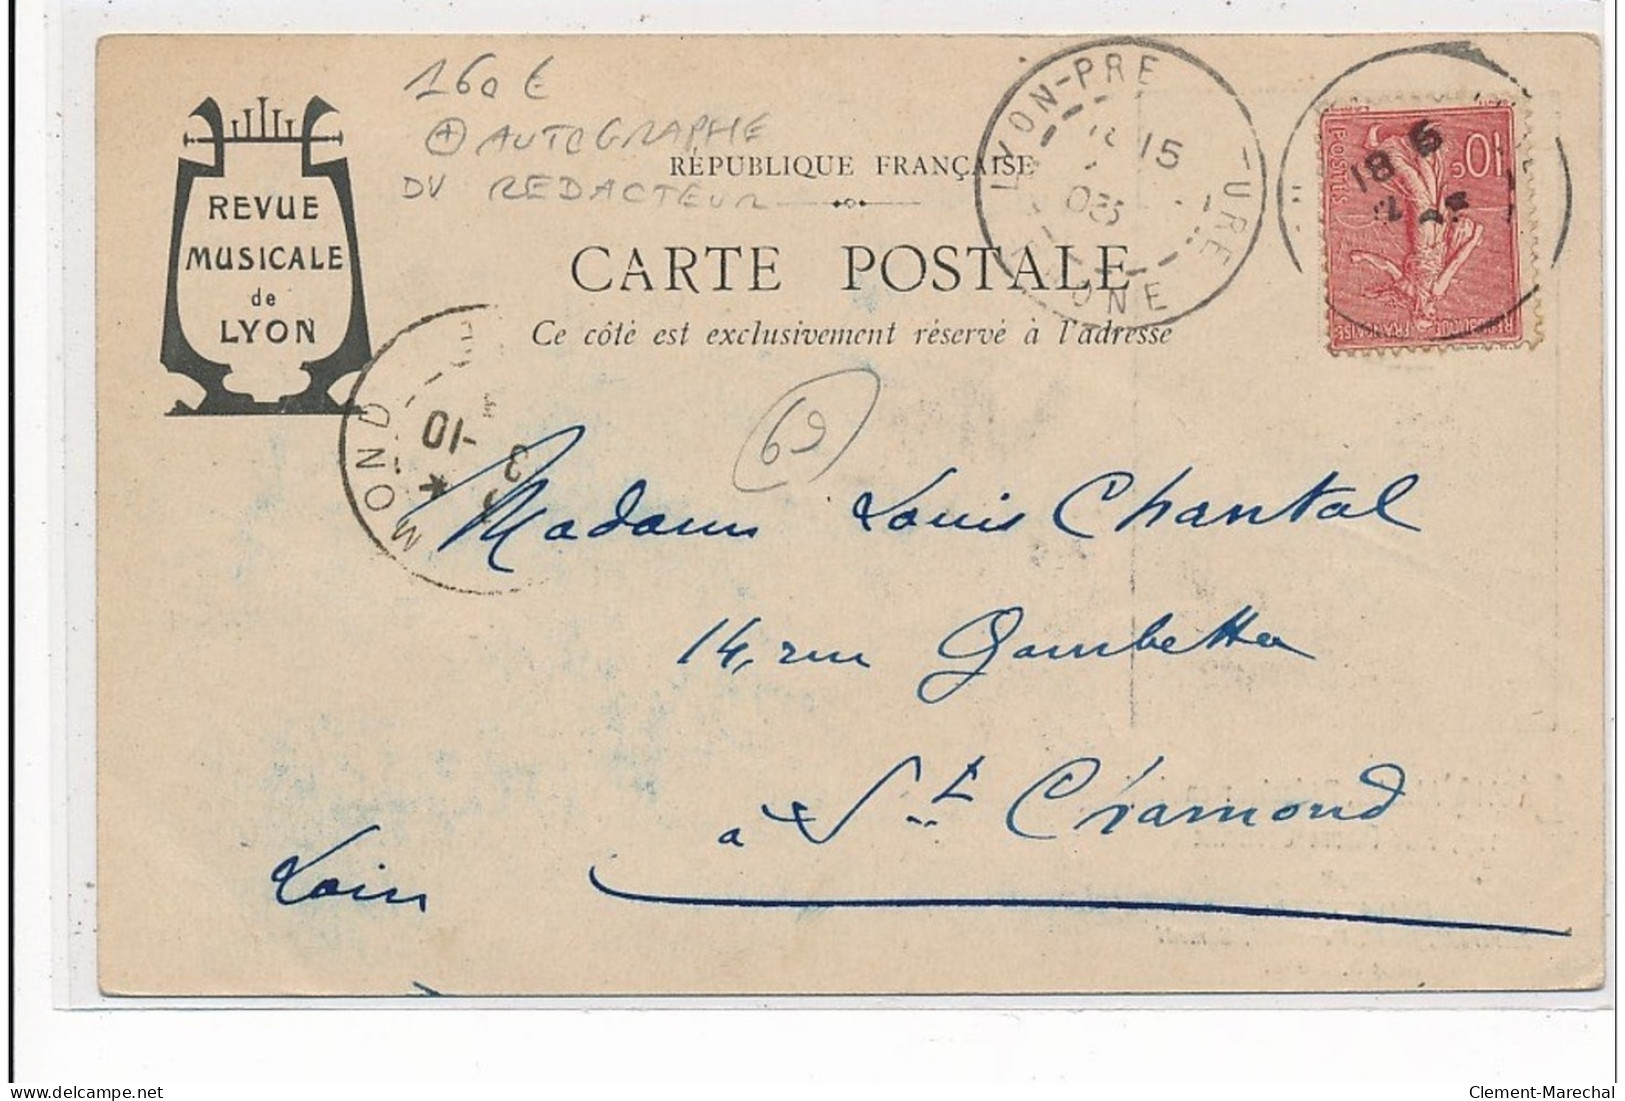 160 €
+ AUTOGRAPHE
DU REDACTEUR
REVUE
MUSICALE
de
LYON
RÉPUBLIQUE FRANÇAISE
CARTE POSTALE
Ce côté est exclusivement réservé à l'adresse
LYON-PRE URE
15
05
ONE
10c
POSTES
REPUBLIQUE FRANÇAISE
18 5
MOND
10
69
Madame Louis Chantal
14, rue Gambetta
à St. Chamond
Loire
Clement-Marechal